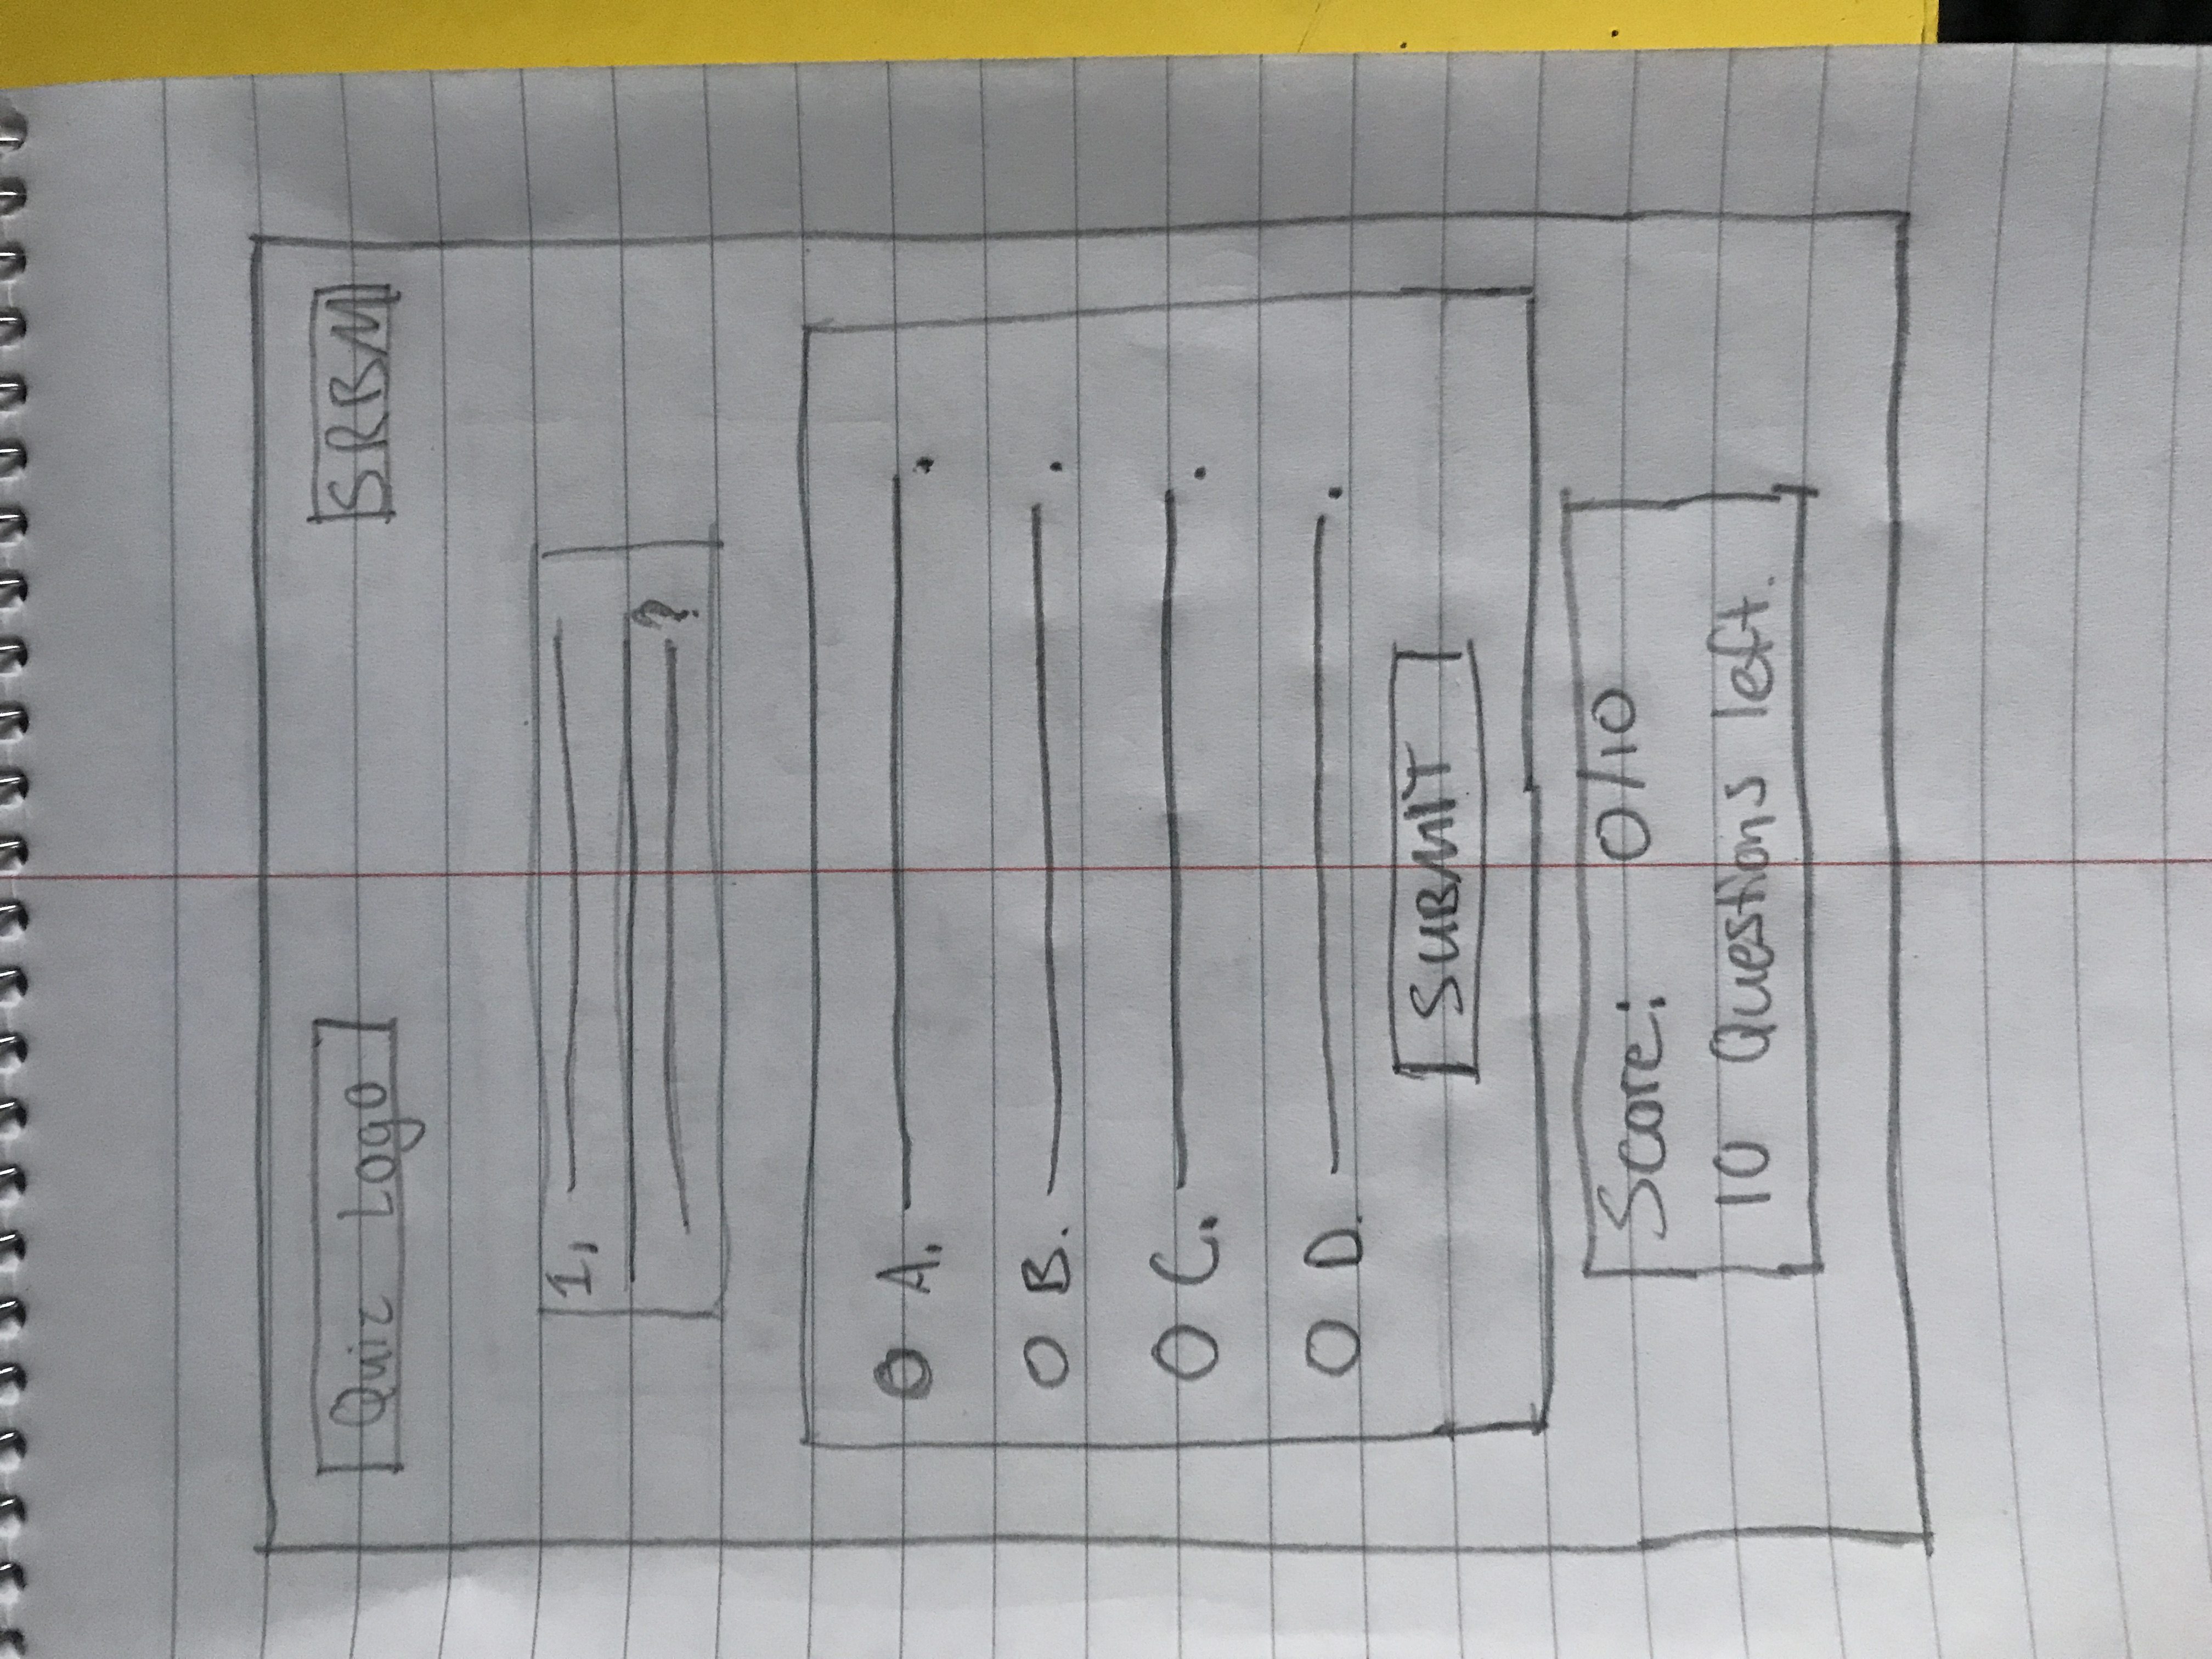 Quiz Logo SRBM
1.
?
A. .
B. .
C. .
D. .
SUBMIT
Score: 0/10
10 Questions left.